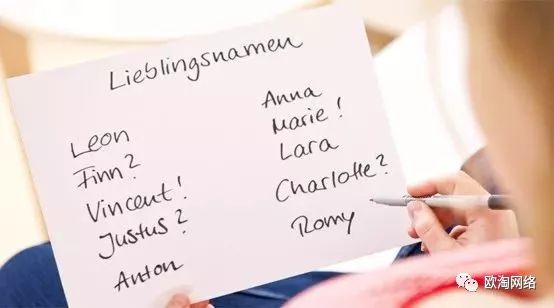 Lieblingsnamen
Leon
Finn?
Vincent!
Justus?
Anton
Anna
Marie!
Lara
Charlotte?
Romy
欧淘网络